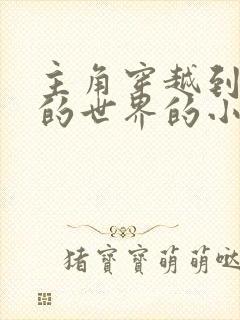 主角穿越到
的世界的小
猪宝宝萌萌哒